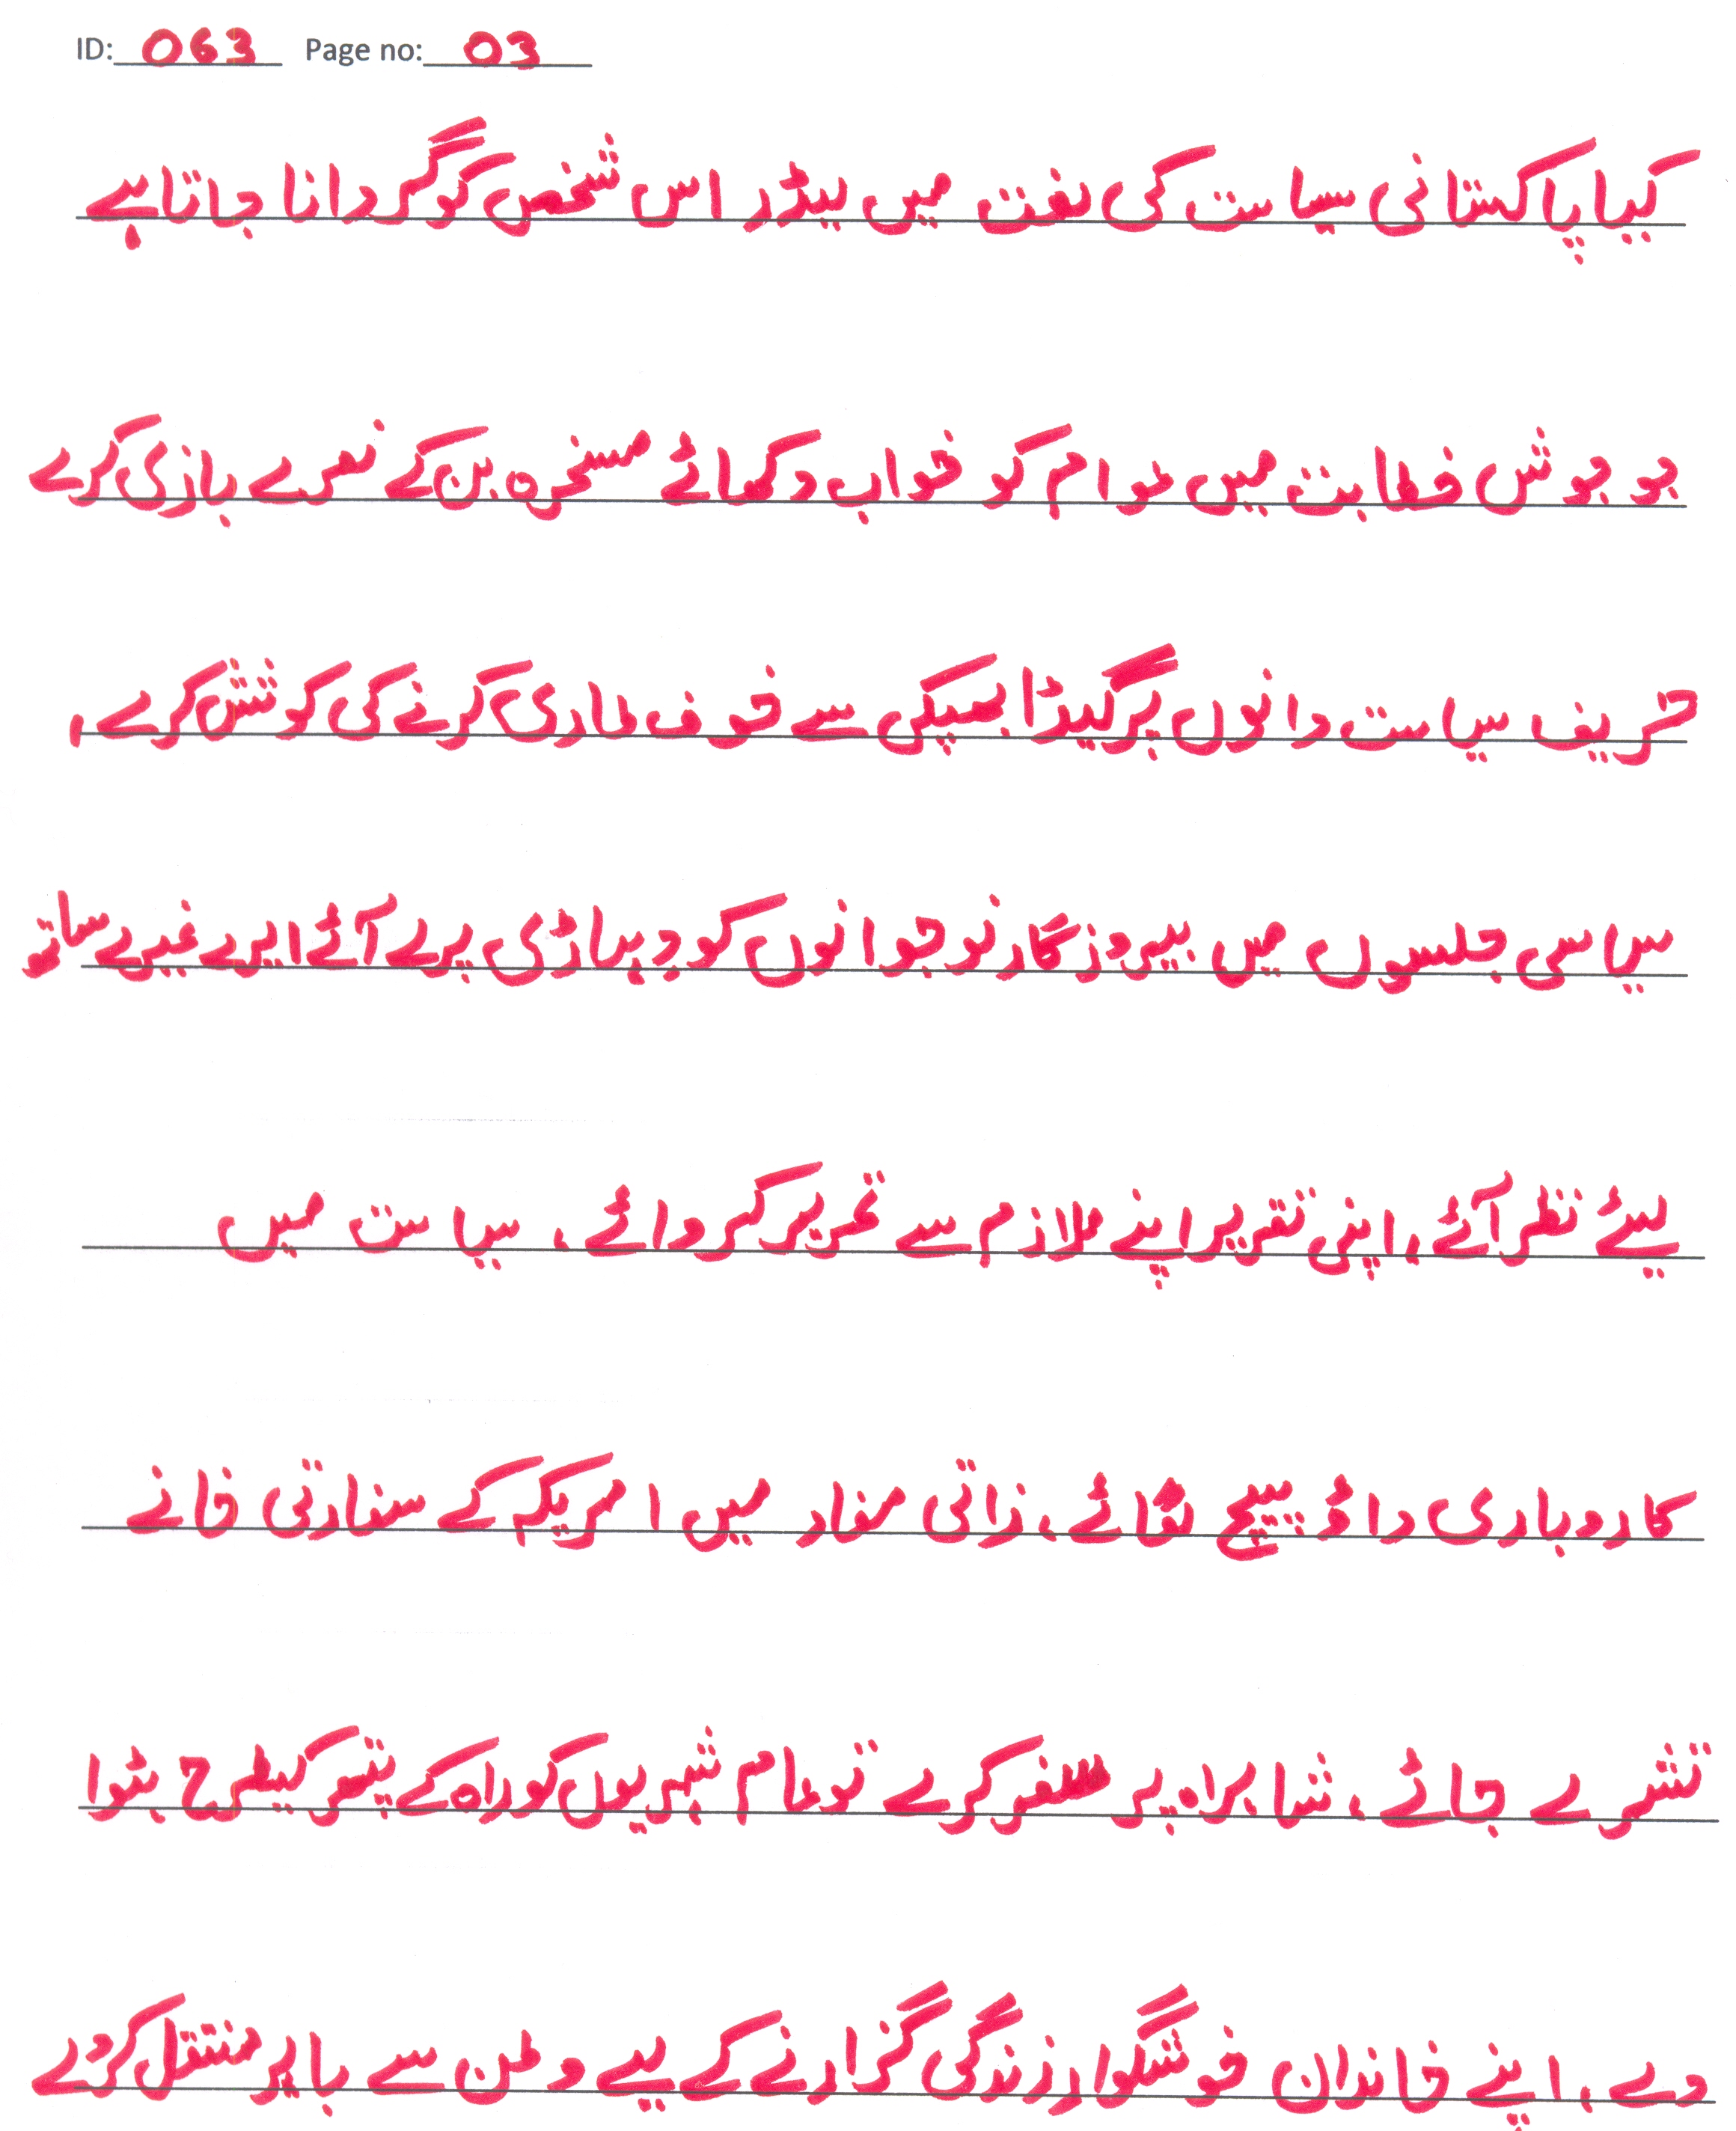 ID: 063 Page no: 03
کیا پاکستانی سیاست کی لغت میں لیڈر اس شخص کو گردانا جاتا ہے
جو جوش خطابت میں عوام کو خواب دکھائے مسخرہ بن کے نعرے بازی کرے
حریف سیاست دانوں پر گیڈر بھبکی سے خوف طاری کرنے کی کوشش کرے ،
سیاسی جلسوں میں بیروزگار نوجوانوں کو دیہاڑی پر لے آئے ایرے غیرے ساتھ
لیئے نظر آئے ، اپنی تقریر اپنے ملازم سے تحریر کروائے ، سیاست میں
کاروباری داؤ پیچ لگائے ، ذاتی مفاد میں امریکہ کے سفارتی خانے
لے جائے ، شاہراہ پر سفر کرے تو عام شہریوں کو راہ کے پتھر کیطرح ہٹوا
دے ، اپنے خاندان خوشگوار زندگی گزارنے کے لیے وطن سے باہر منتقل کر دے